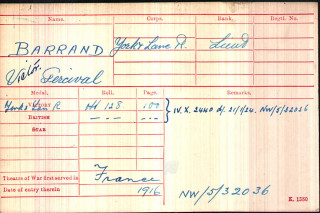 Name. Corps. Rank. Regtl. No.
BARRAND York & Lanc R. Lieut
Victor Percival
Medal. Roll. Page. Remarks.
VICTORY York & Lan R H/128 100 IV. X. 2440 d/ 21/1/24. NW/5/32036
BRITISH -do- -do-
STAR
Theatre of War first served in France
Date of entry therein 1916 NW/5/32036
K. 1380